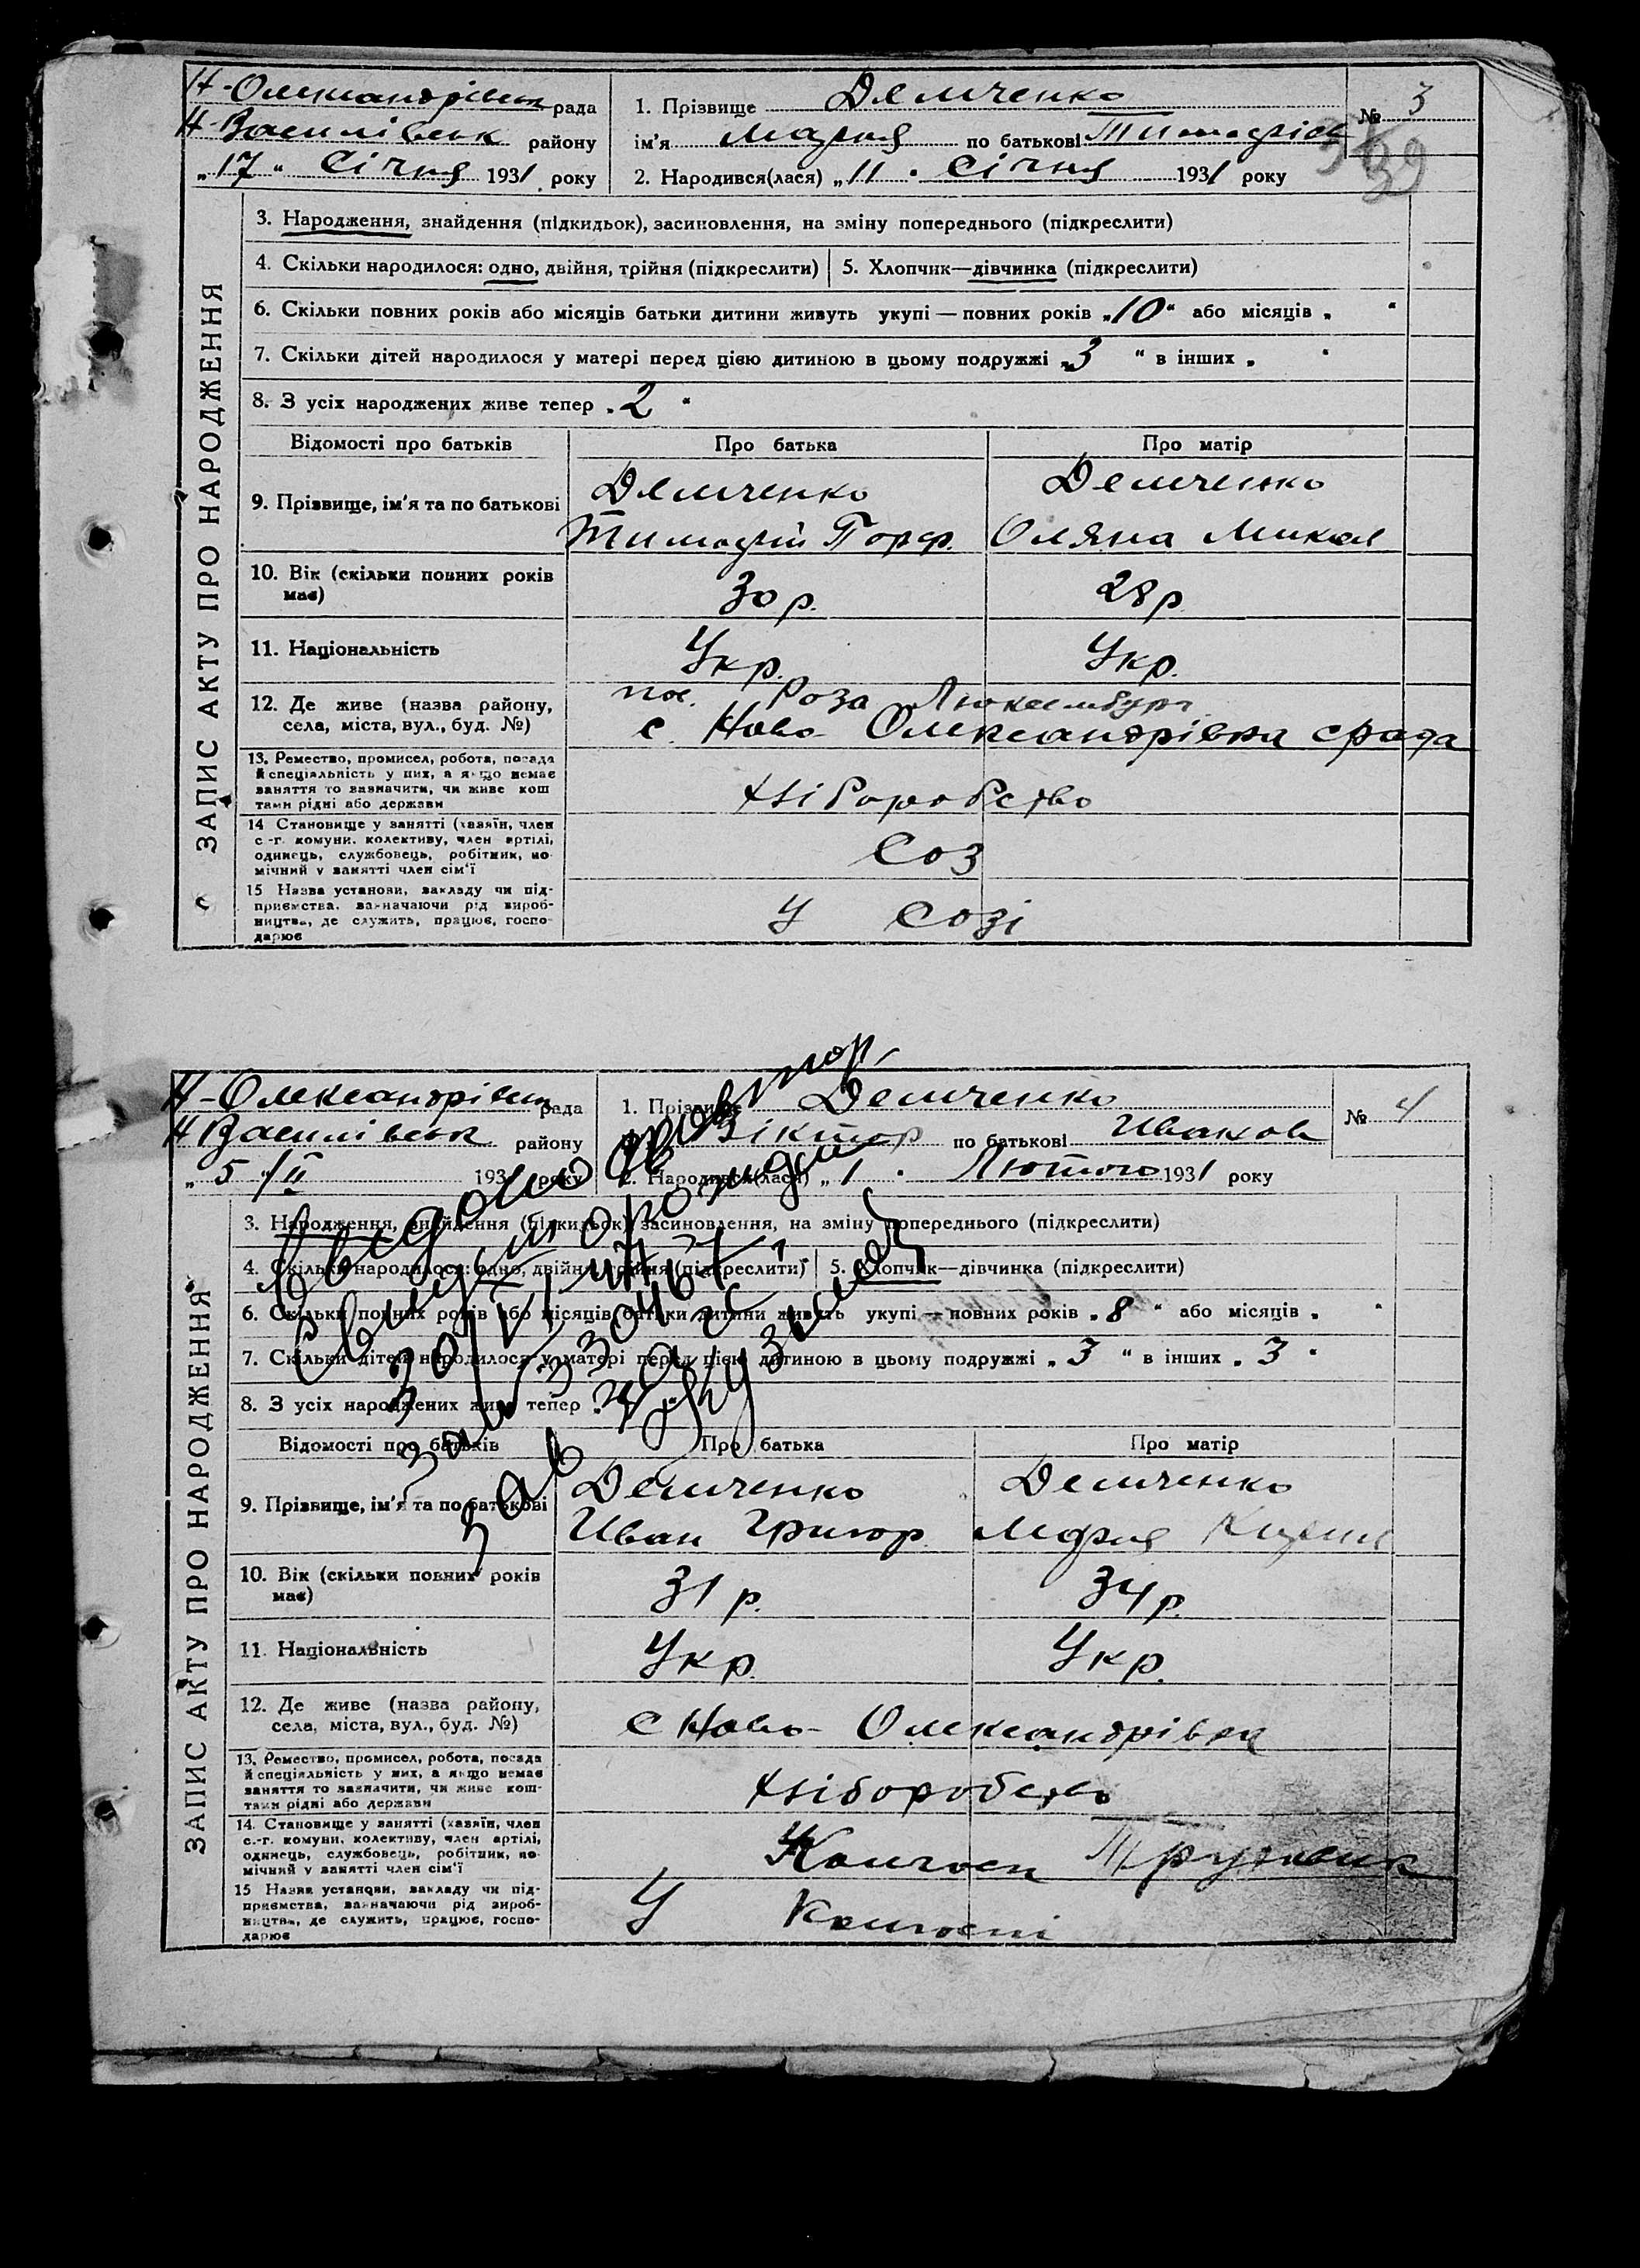 Н-Олександрівськ рада
Н Василівськ району
„17“ Січня 1931 року
1. Прізвище Демченко
ім'я Мария по батькові Тимофіев
2. Народився(лася) „11“ Січня 1931 року
№ 3
39
ЗАПИС АКТУ ПРО НАРОДЖЕННЯ
3. Народження, знайдення (підкидьок), засиновлення, на зміну попереднього (підкреслити)
4. Скільки народилося: одно, двійня, трійня (підкреслити) 5. Хлопчик—дівчинка (підкреслити)
6. Скільки повних років або місяців батьки дитини живуть укупі — повних років „10“ або місяців „ “
7. Скільки дітей народилося у матері перед цією дитиною в цьому подружжі „3 “ в інших „ “
8. З усіх народжених живе тепер „2 “
Відомості про батьків Про батька Про матір
9. Прізвище, ім'я та по батькові
Демченко
Тимофій Порф.
Демченко
Оляна Микол
10. Вік (скільки повних років має) 30 р. 28 р
11. Національність Укр. Укр.
12. Де живе (назва району, села, міста, вул., буд. №)
пос. Роза Люксембург
с. Ново-Олександрівка срада
13. Ремество, промисел, робота, посада
й спеціяльність у них, а якщо немає
заняття то зазначити, чи живе кош
тами рідні або держави
Хліборобство
14 Становище у занятті (хазяїн, член
с.-г. комуни, колективу, член артілі,
одинець, службовець, робітник, по-
мічний у занятті член сім'ї
Соз
15 Назва установи, закладу чи під-
приємства, зазначаючи рід вироб-
ництва, де служить, працює, госпо-
дарює
У Созі
Н-Олександрівськ рада
Н Василівськ району
„5/II 1931 року
1. Прізвище Демченко
Віктор по батькові Иванов
2. Народився(лася) „1“ Лютого 1931 року
№ 4
ЗАПИС АКТУ ПРО НАРОДЖЕННЯ
3. Народження, знайдення (підкидьок) засиновлення, на зміну попереднього (підкреслити)
4. Скільки народилося: одно, двійня, трійня (підкреслити) 5. Хлопчик—дівчинка (підкреслити)
6. Скільки повних років або місяців батьки дитини живуть укупі — повних років „8 “ або місяців „ “
7. Скільки дітей народилося у матері перед цією дитиною в цьому подружжі „3 “ в інших „3 “
8. З усіх народжених живе тепер
Відомості про батьків Про батька Про матір
9. Прізвище, ім'я та по батькові
Демченко
Иван Григор
Демченко
Мария
10. Вік (скільки повних років має) 31 р. 34 р.
11. Національність Укр. Укр.
12. Де живе (назва району, села, міста, вул., буд. №)
с Ново-Олександрівка
13. Ремество, промисел, робота, посада
й спеціяльність у них, а якщо немає
заняття то зазначити, чи живе кош-
тами рідні або держави
Хліборобство
14. Становище у занятті (хазяїн, член
с.-г. комуни, колективу, член артілі,
одинець, службовець, робітник, по-
мічний у занятті член сім'ї
Колгосп Трудовик
15 Назва установи, закладу чи під-
приємства, зазначаючи рід вироб-
ництва, де служить, працює, госпо-
дарює
У Колгоспі
Выдано повтор.